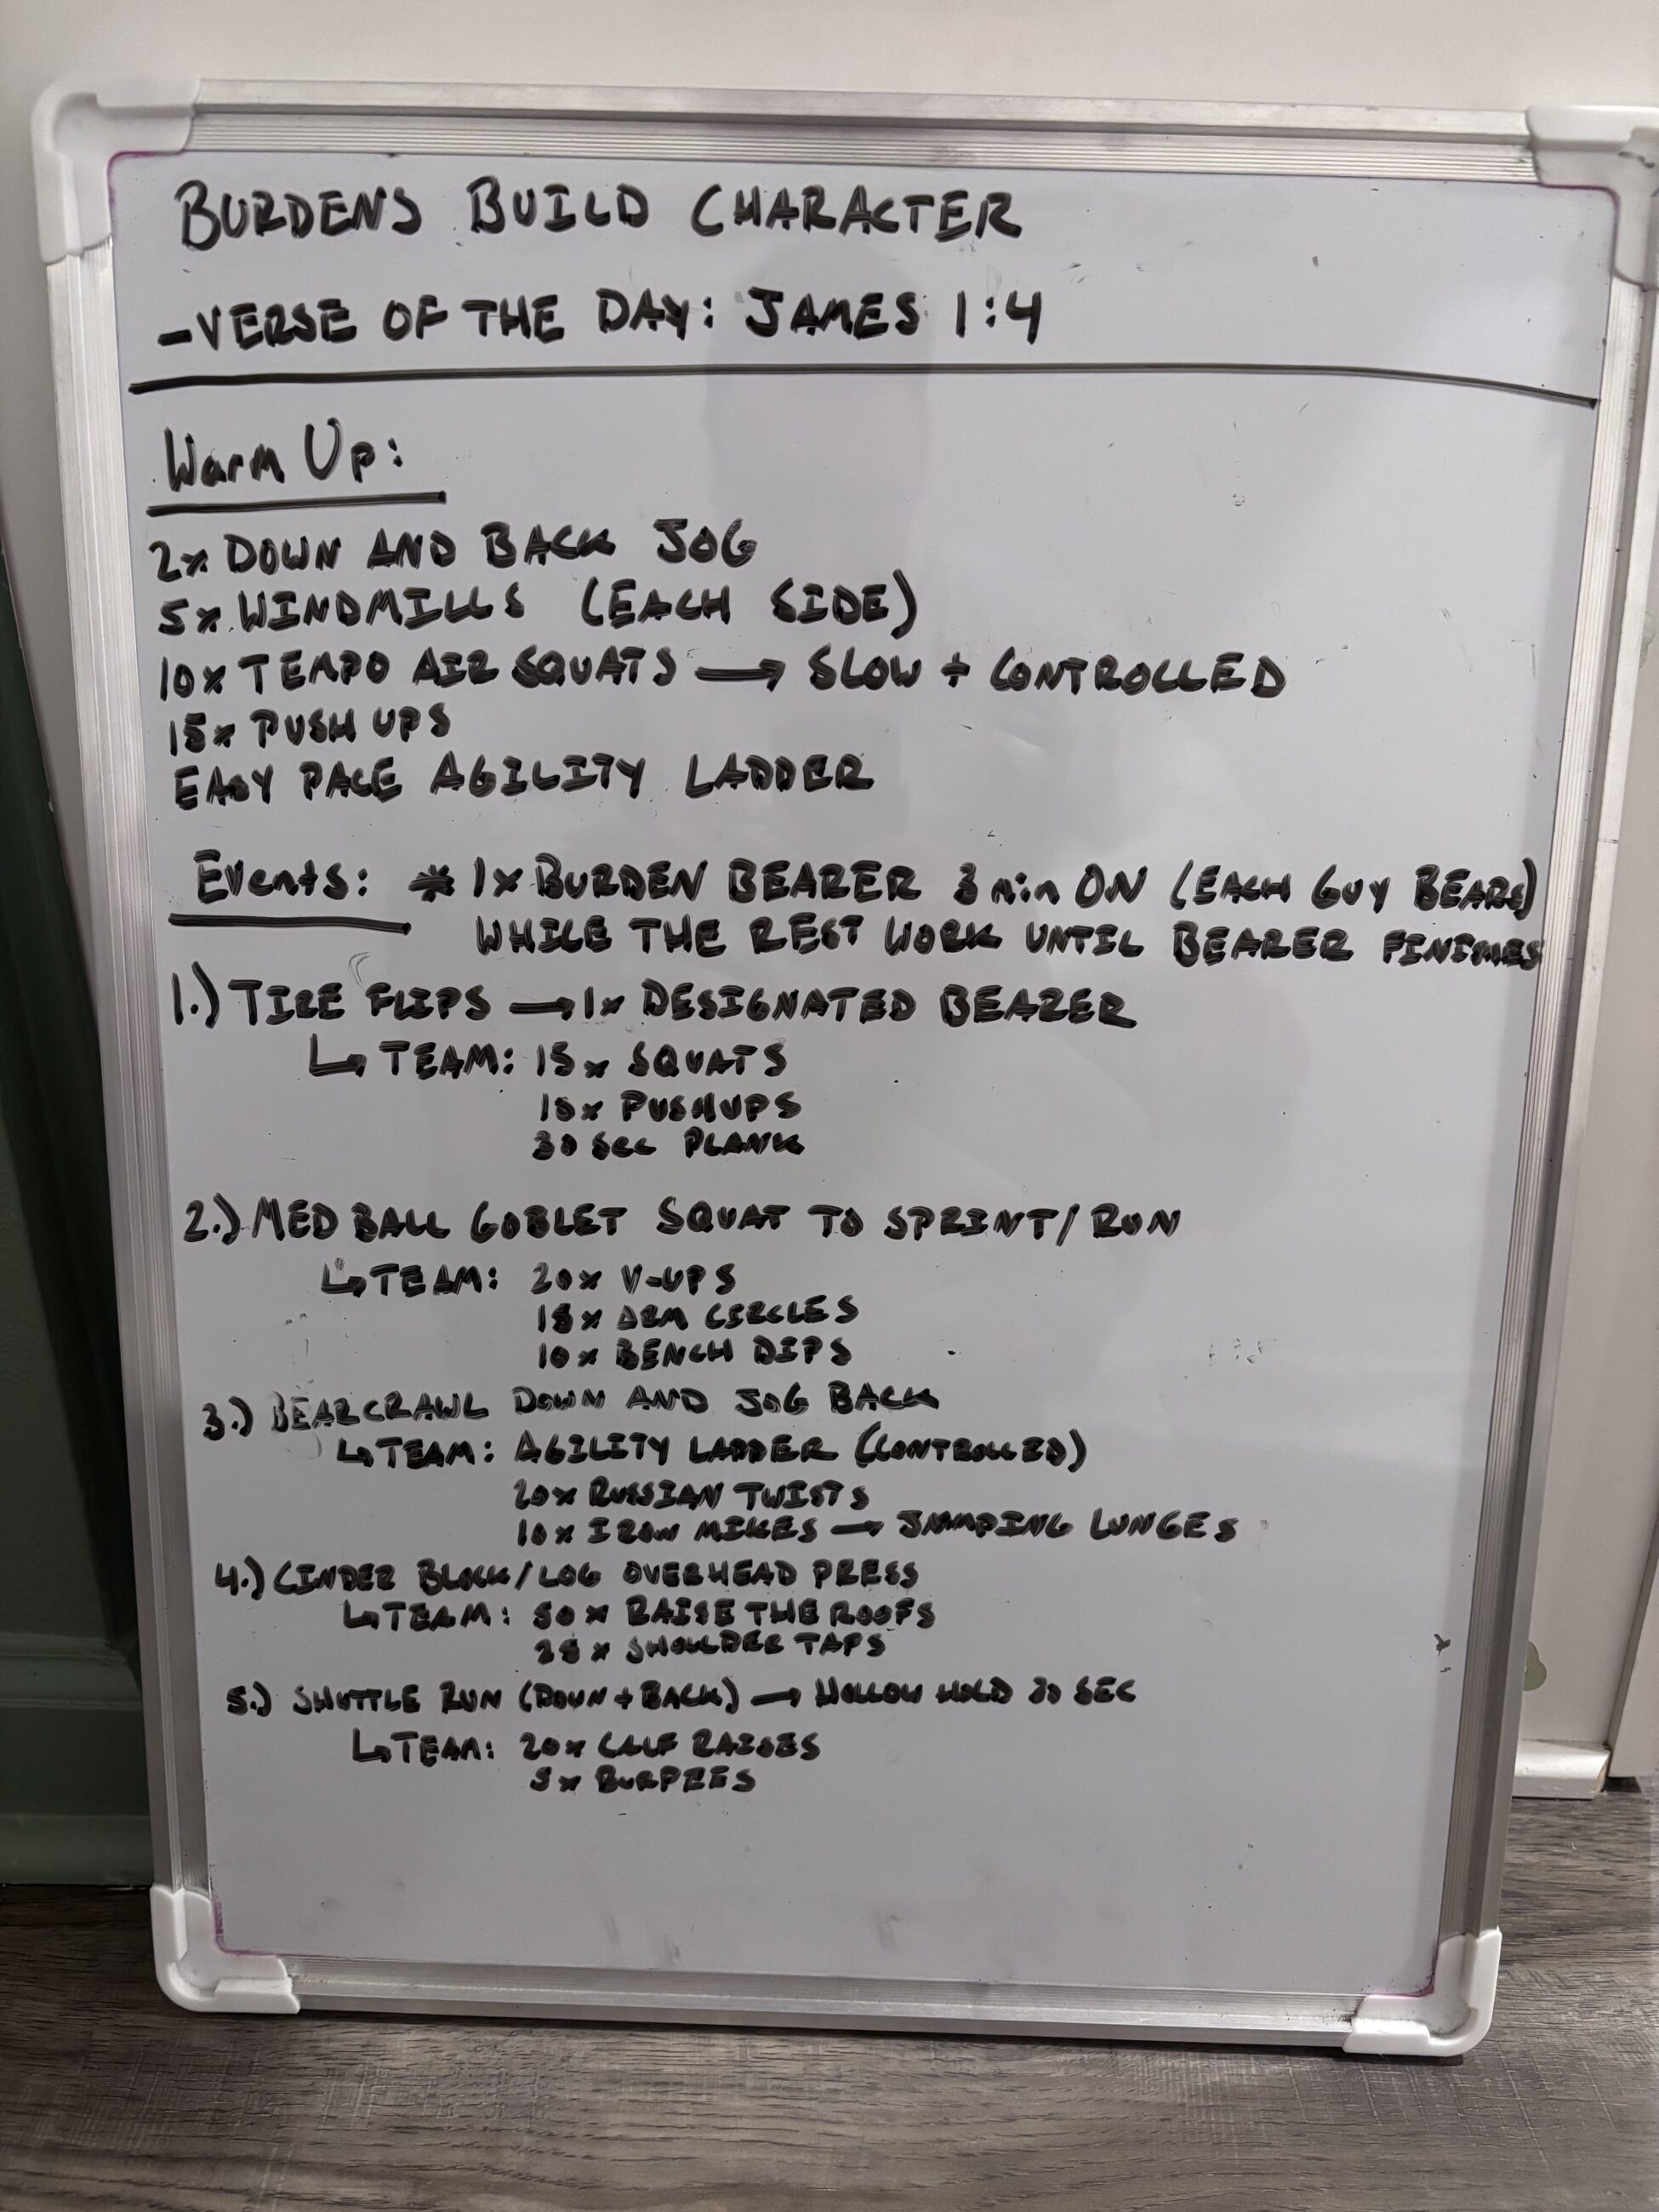 BURDENS BUILD CHARACTER
-VERSE OF THE DAY: JAMES 1:4
Warm Up:
2x DOWN AND BACK JOG
5x WINDMILLS (EACH SIDE)
10x TEMPO AIR SQUATS → SLOW + CONTROLLED
15x PUSH UPS
EASY PACE AGILITY LADDER
Events: * 1x BURDEN BEARER 3 min ON (EACH GUY BEARS)
WHILE THE REST WORK UNTIL BEARER FINISHES
1.) TIRE FLIPS → 1x DESIGNATED BEARER
↳ TEAM: 15x SQUATS
PUSHUPS
30 SEC PLANK
2.) MED BALL GOBLET SQUAT TO SPRINT/RUN
↳ TEAM: 20x V-UPS
ARM CIRCLES
10x BENCH DIPS
3.) BEARCRAWL DOWN AND JOG BACK
↳ TEAM: AGILITY LADDER (CONTROLLED)
20x RUSSIAN TWISTS
10x IRON MIKES → JUMPING LUNGES
4.) CINDER BLOCK/LOG OVERHEAD PRESS
↳ TEAM: 50x RAISE THE ROOFS
SHOULDER TAPS
5.) SHUTTLE RUN (DOWN + BACK) → HOLLOW HOLD SEC
↳ TEAM: 20x CALF RAISES
5x BURPEES